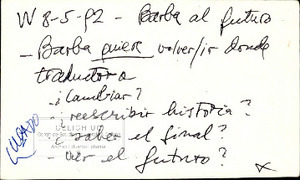 W 8-5-92 - Barba al futuro
- Barba quiere volver/ir donde
traductora
- ¿Cambiar?
¿reescribir historia?
¿saber el final?
- ver el futuro?
USADO
CELICH UC
x